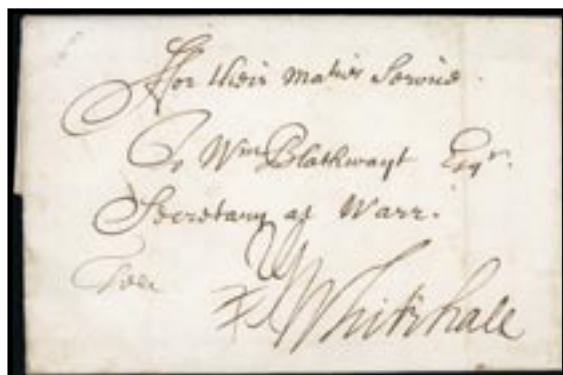 For their Ma^ties Service.
To W^m Blathwayt Esq^r.
Secretary at Warr.
Whitehall